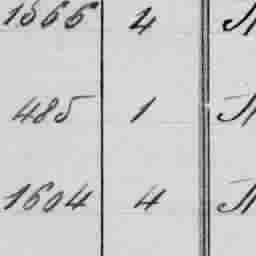 1566 4
485 1
1604 4